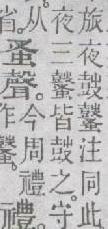 旅夜鼓鼜注同此
夜三鼜皆鼓之守
从
省。
蚤聲。
今周禮
作鼜。
禮。